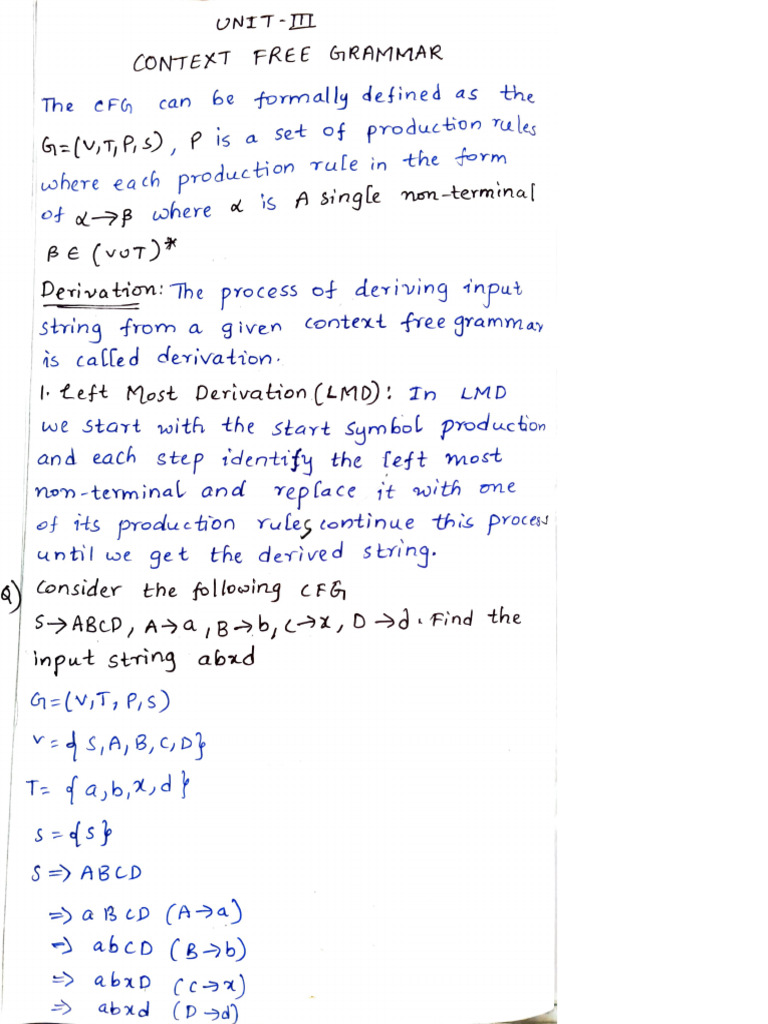 UNIT-III
CONTEXT FREE GRAMMAR
The CFG can be formally defined as the
G=(V,T,P,S), P is a set of production rules
where each production rule in the form
of α→β where α is A single non-terminal
β ∈ (V∪T)*
Derivation: The process of deriving input
string from a given context free grammar
is called derivation.
1. Left Most Derivation (LMD): In LMD
we start with the start symbol production
and each step identify the left most
non-terminal and replace it with one
of its production rules continue this process
until we get the derived string.
Q) Consider the following CFG
S→ABCD, A→a, B→b, C→x, D→d. Find the
input string abxd
G=(V,T,P,S)
V={S,A,B,C,D}
T={a,b,x,d}
S={S}
S⇒ABCD
⇒aBCD (A→a)
⇒abCD (B→b)
⇒abxD (C→x)
⇒abxd (D→d)